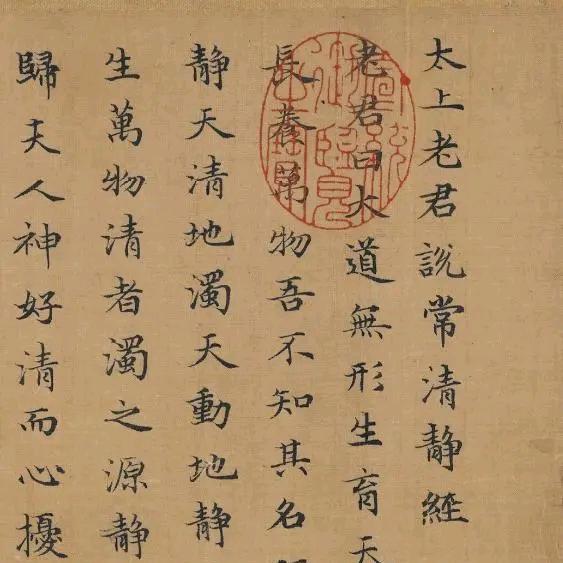 太上老君說常清靜經
老君曰大道無形生育天
長養萬物吾不知其名
静天清地濁天動地静
生萬物清者濁之源静
歸夫人神好清而心擾